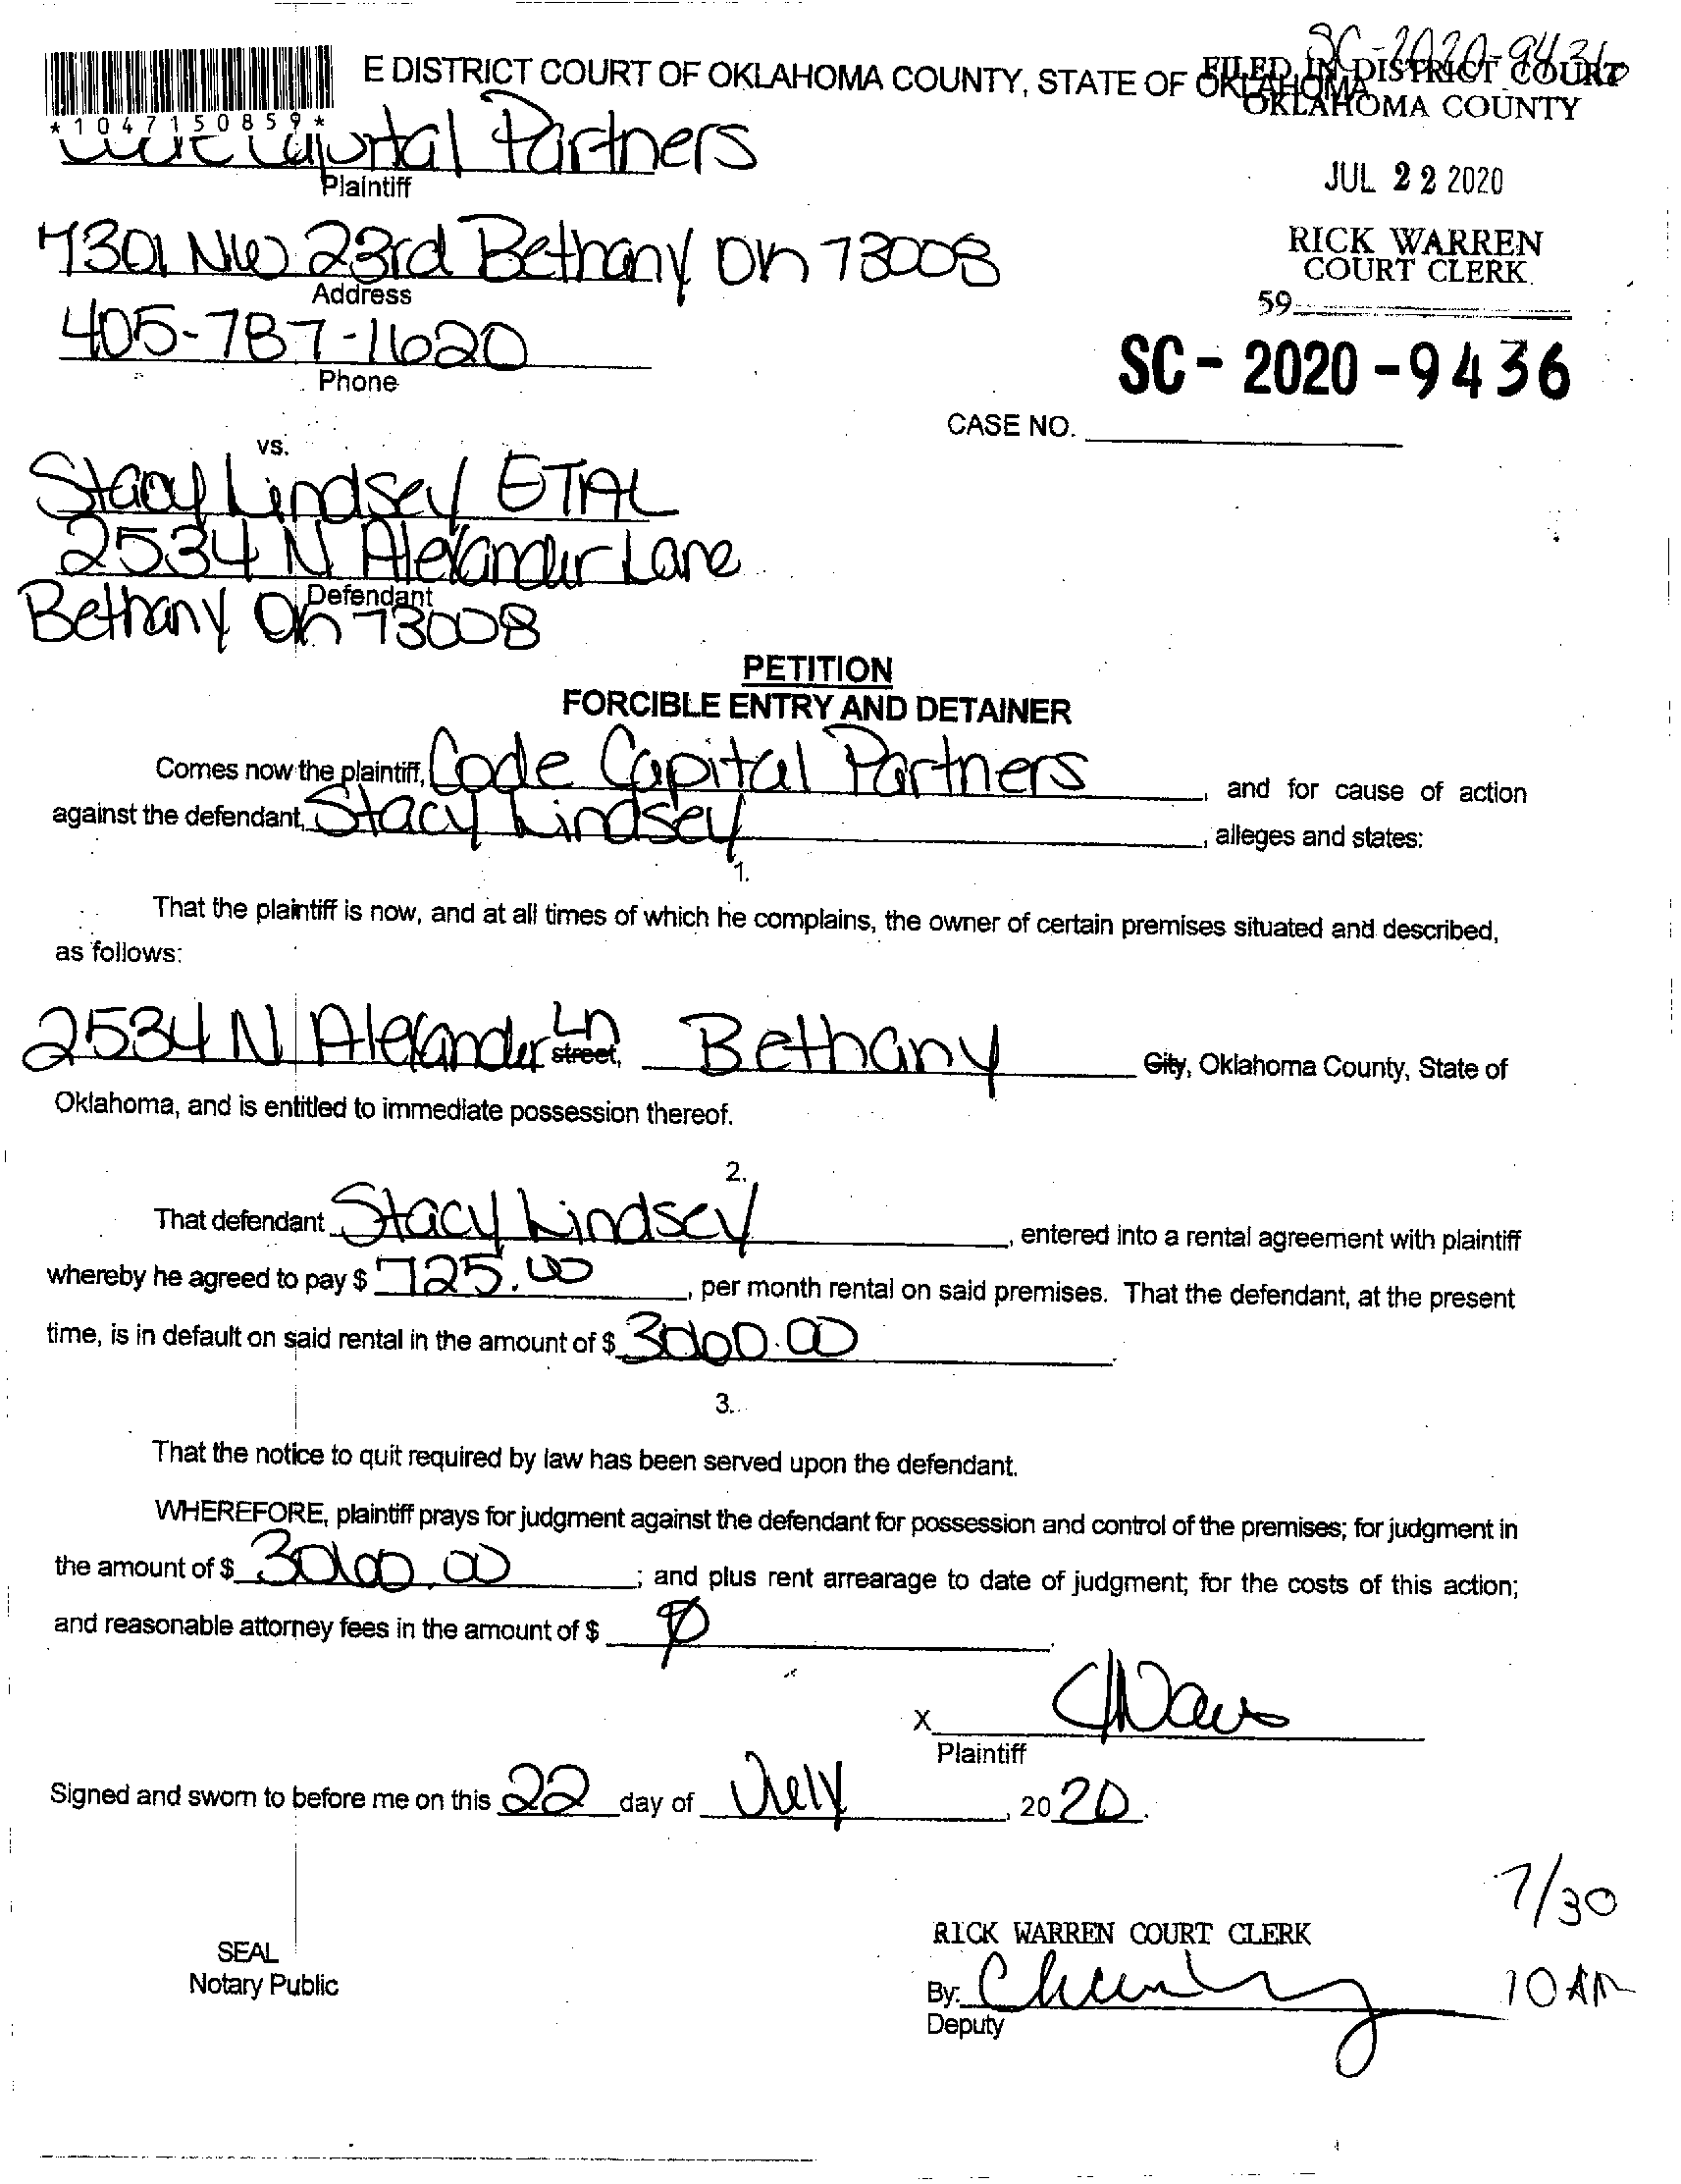 SC-2020-9436
E DISTRICT COURT OF OKLAHOMA COUNTY, STATE OF OKLAHOMA
FILED IN DISTRICT COURT
OKLAHOMA COUNTY
*1047150859*
Partners
Plaintiff
JUL 22 2020
7301 NW 23rd Bethany OK 73008
Address
RICK WARREN
COURT CLERK
59
405-787-1620
Phone
SC-2020-9436
CASE NO.
vs.
Stacy Lindsey ETAL
2534 N Alexander Lane
Defendant
Bethany OK 73008
PETITION
FORCIBLE ENTRY AND DETAINER
Comes now the plaintiff, Code Capital Partners, and for cause of action
against the defendant, Stacy Lindsey, alleges and states:
1.
That the plaintiff is now, and at all times of which he complains, the owner of certain premises situated and described,
as follows:
2534 N Alexander Ln street, Bethany City, Oklahoma County, State of
Oklahoma, and is entitled to immediate possession thereof.
2.
That defendant Stacy Lindsey, entered into a rental agreement with plaintiff
whereby he agreed to pay $ 725.00, per month rental on said premises. That the defendant, at the present
time, is in default on said rental in the amount of $
3.
That the notice to quit required by law has been served upon the defendant.
WHEREFORE, plaintiff prays for judgment against the defendant for possession and control of the premises; for judgment in
the amount of $ ; and plus rent arrearage to date of judgment; for the costs of this action;
and reasonable attorney fees in the amount of $
X
Plaintiff
Signed and sworn to before me on this 22 day of July, 2020.
7/30
10 AM
RICK WARREN COURT CLERK
SEAL
Notary Public
By:
Deputy